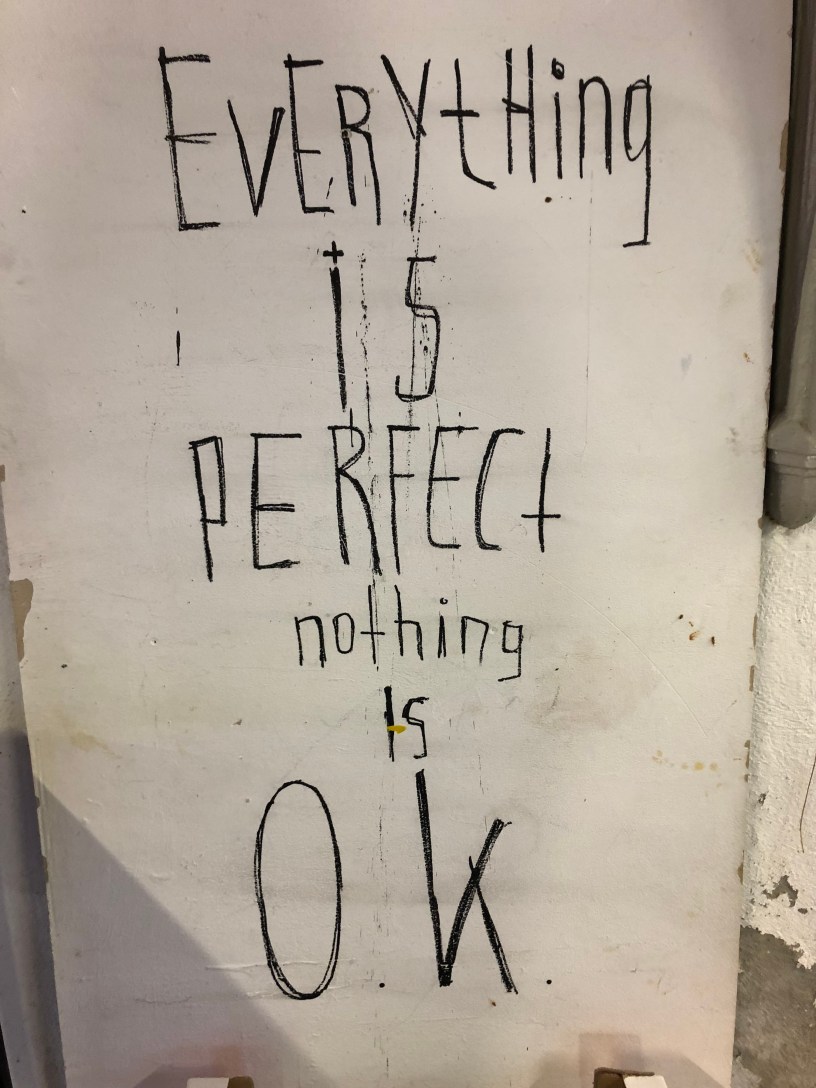 EVERYtHing
is
PERFECt
nothing
is
O.K.